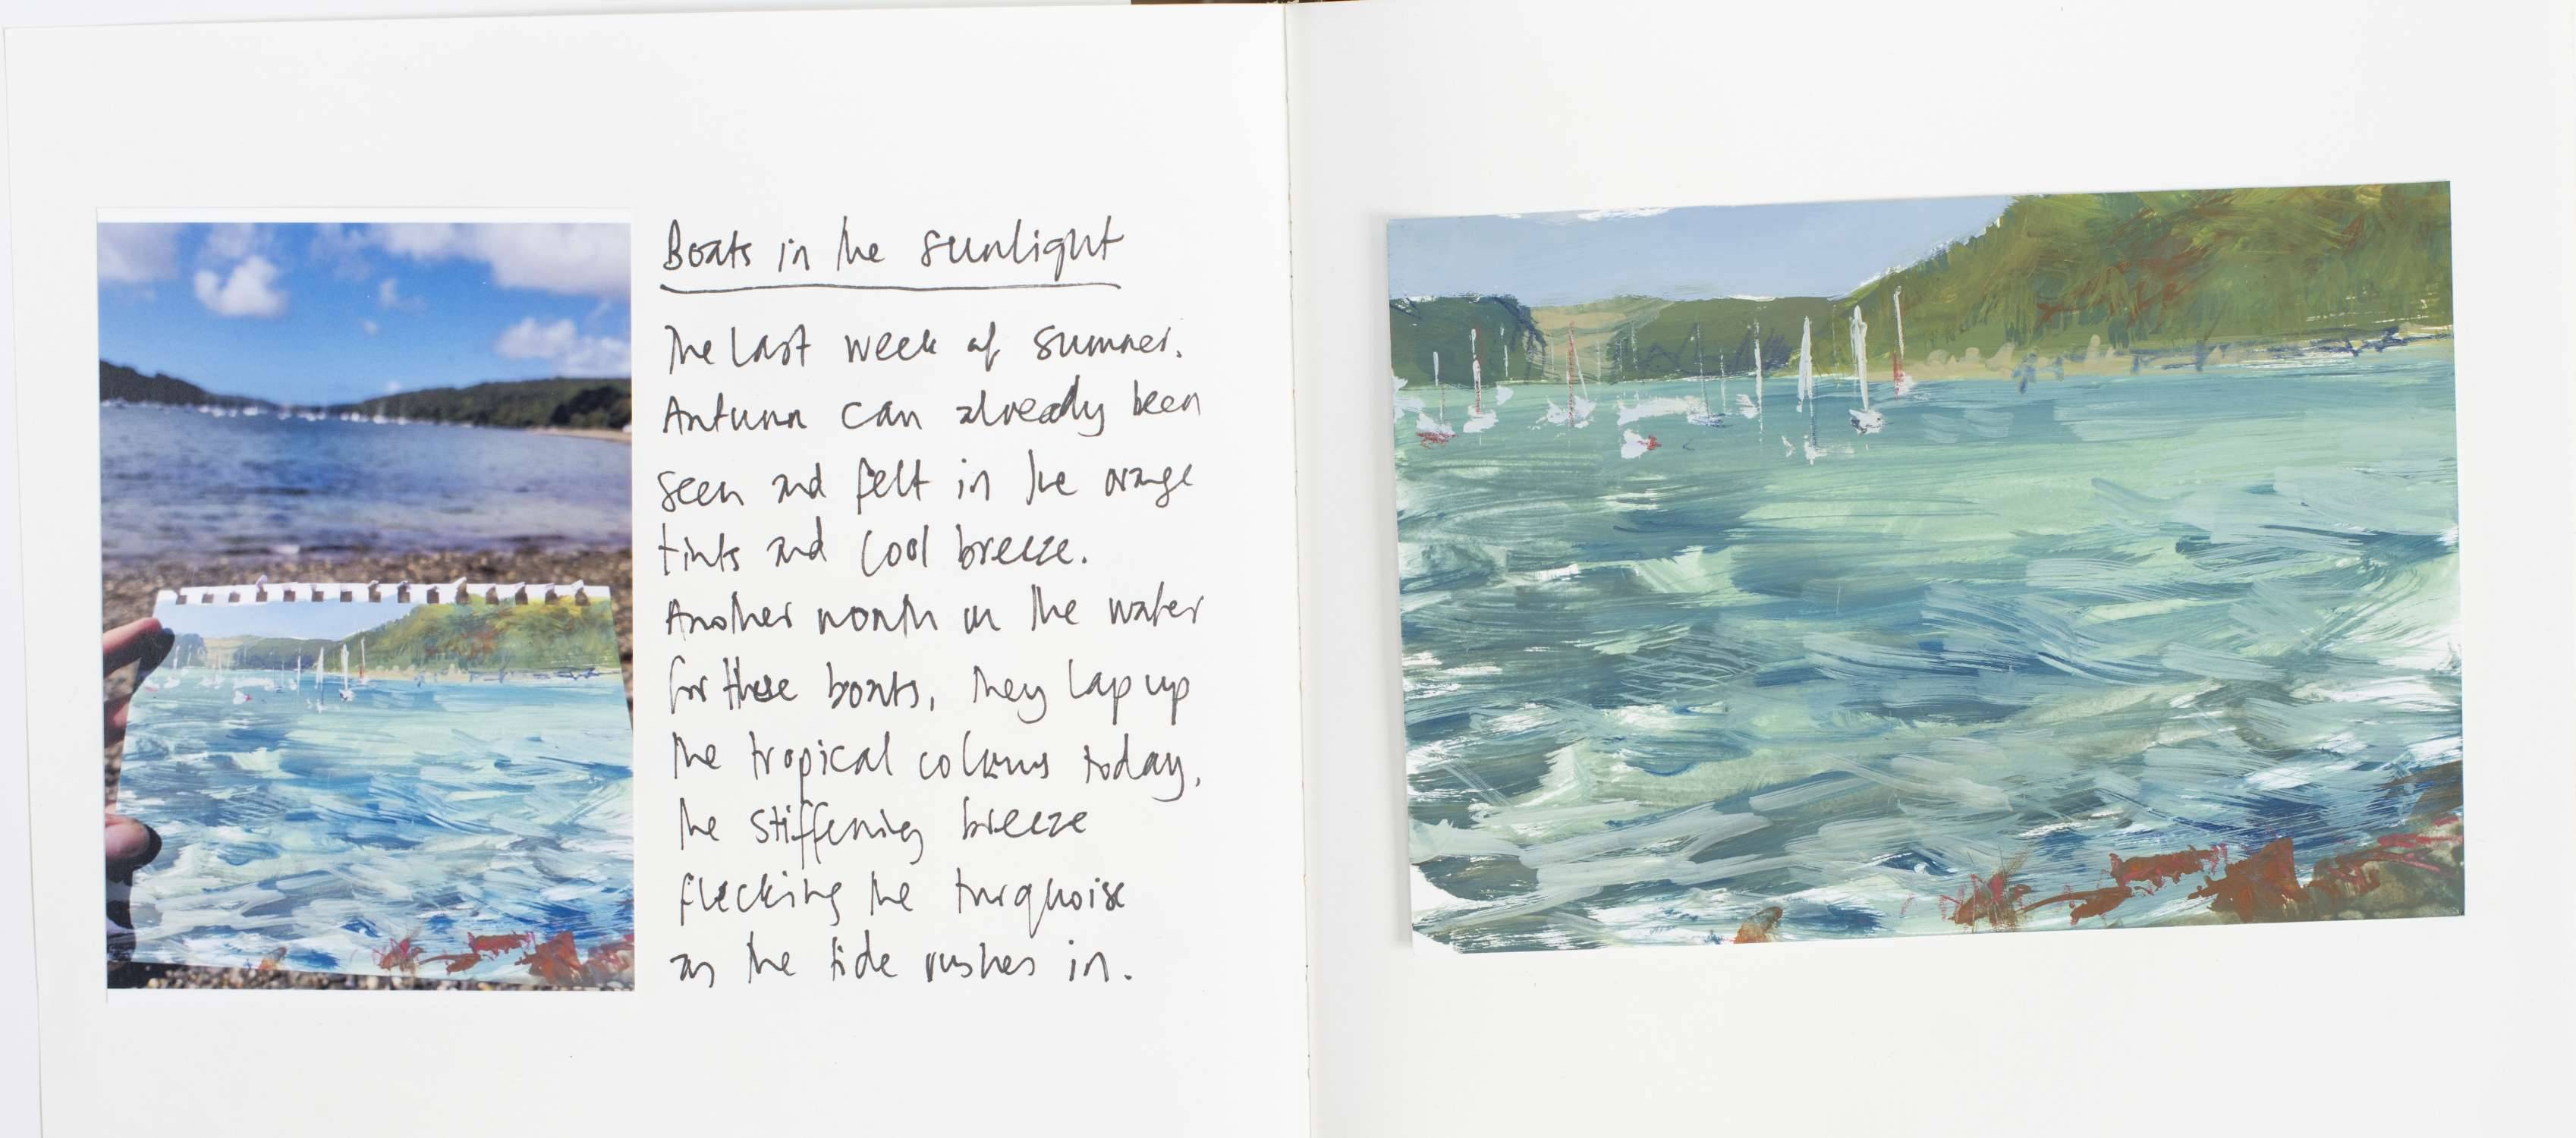 Boats in the sunlight
The last week of summer.
Autumn can already been
seen and felt in the orange
tints and cool breeze.
Another month in the water
for these boats, they lap up
the tropical colours today,
the stiffening breeze
flecking the turquoise
as the tide rushes in.